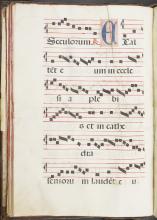 Seculorum. E Xal
tēt e um in eccle
si a ple bi
s et in cathe
dra
seniorū laudēt e u